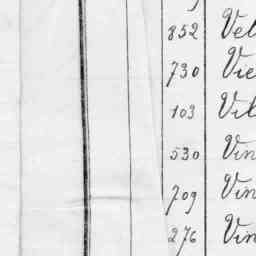 852 Vel
730 Vie
103 Vil
530 Vin
709 Vin
276 Vin